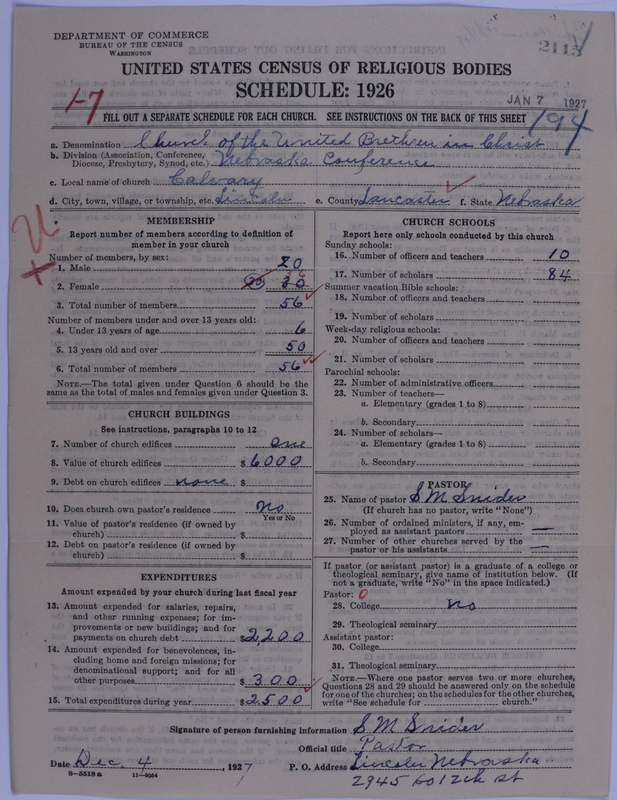 DEPARTMENT OF COMMERCE
BUREAU OF THE CENSUS
WASHINGTON
2113
UNITED STATES CENSUS OF RELIGIOUS BODIES
SCHEDULE: 1926
1-7
JAN 7 1927
FILL OUT A SEPARATE SCHEDULE FOR EACH CHURCH. SEE INSTRUCTIONS ON THE BACK OF THIS SHEET
194
a. Denomination Church of the United Brethren in Christ
b. Division (Association, Conference, Diocese, Presbytery, Synod, etc.) Nebraska Conference
c. Local name of church Calvary
d. City, town, village, or township, etc. Lincoln e. County Lancaster f. State Nebraska
MEMBERSHIP
Report number of members according to definition of
member in your church
Number of members, by sex:
1. Male 20
2. Female 36
3. Total number of members 56
Number of members under and over 13 years old:
4. Under 13 years of age 6
5. 13 years old and over 50
6. Total number of members 56
NOTE.—The total given under Question 6 should be
same as the total of males and females given under Question 3.
CHURCH BUILDINGS
See instructions, paragraphs 10 to 12
7. Number of church edifices one
8. Value of church edifices $6000
9. Debt on church edifices none $
10. Does church own pastor's residence No
Yes or No
11. Value of pastor's residence (if owned by
church) $
12. Debt on pastor's residence (if owned by
church) $
EXPENDITURES
Amount expended by your church during last fiscal year
13. Amount expended for salaries, repairs,
and other running expenses; for im-
provements or new buildings; and for
payments on church debt $2,200
14. Amount expended for benevolences, in-
cluding home and foreign missions; for
denominational support; and for all
other purposes $300
15. Total expenditures during year $2500
CHURCH SCHOOLS
Report here only schools conducted by this church
Sunday schools:
16. Number of officers and teachers 10
17. Number of scholars 84
Summer vacation Bible schools:
18. Number of officers and teachers
19. Number of scholars
Week-day religious schools:
20. Number of officers and teachers
21. Number of scholars
Parochial schools:
22. Number of administrative officers
23. Number of teachers—
a. Elementary (grades 1 to 8)
b. Secondary
24. Number of scholars—
a. Elementary (grades 1 to 8)
b. Secondary
PASTOR
25. Name of pastor S M Snider
(If church has no pastor, write "None")
26. Number of ordained ministers, if any, em-
ployed as assistant pastors —
27. Number of other churches served by the
pastor or his assistants —
If pastor (or assistant pastor) is a graduate of a college or
theological seminary, give name of institution below. (If
not a graduate, write "No" in the space indicated.)
Pastor: 0
28. College no
29. Theological seminary
Assistant pastor:
30. College
31. Theological seminary
NOTE.—Where one pastor serves two or more churches,
Questions 28 and 29 should be answered only on the schedule
for one of the churches; on the schedules for the other churches,
write "See schedule for church."
Signature of person furnishing information S M Snider
Official title Pastor
Date Dec. 4, 1927 P. O. Address Lincoln Nebraska
8—5518 a 11—9054
2945 So 12th st